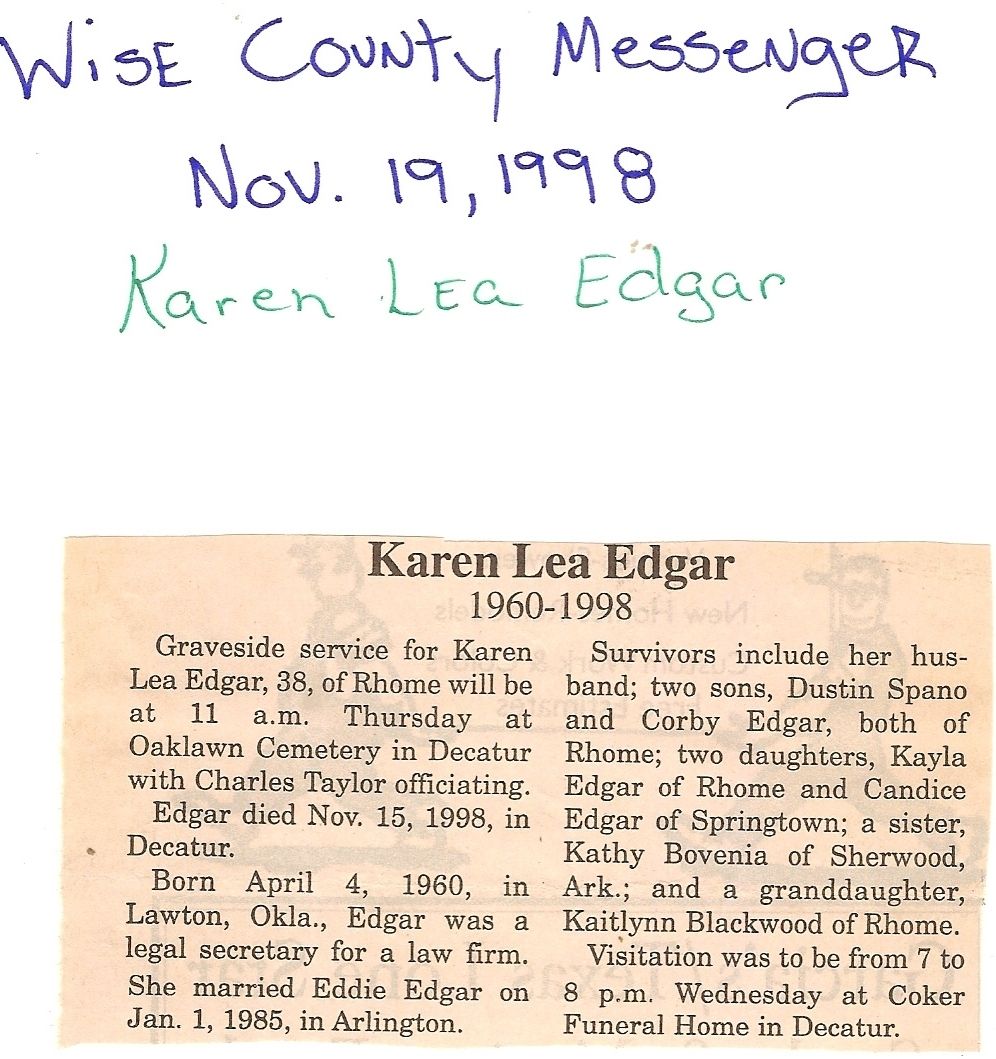 Wise County Messenger
Nov. 19, 1998
Karen Lea Edgar
Karen Lea Edgar
1960-1998
Graveside service for Karen
Lea Edgar, 38, of Rhome will be
at 11 a.m. Thursday at
Oaklawn Cemetery in Decatur
with Charles Taylor officiating.
Edgar died Nov. 15, 1998, in
Decatur.
Born April 4, 1960, in
Lawton, Okla., Edgar was a
legal secretary for a law firm.
She married Eddie Edgar on
Jan. 1, 1985, in Arlington.
Survivors include her hus-
band; two sons, Dustin Spano
and Corby Edgar, both of
Rhome; two daughters, Kayla
Edgar of Rhome and Candice
Edgar of Springtown; a sister,
Kathy Bovenia of Sherwood,
Ark.; and a granddaughter,
Kaitlynn Blackwood of Rhome.
Visitation was to be from 7 to
8 p.m. Wednesday at Coker
Funeral Home in Decatur.